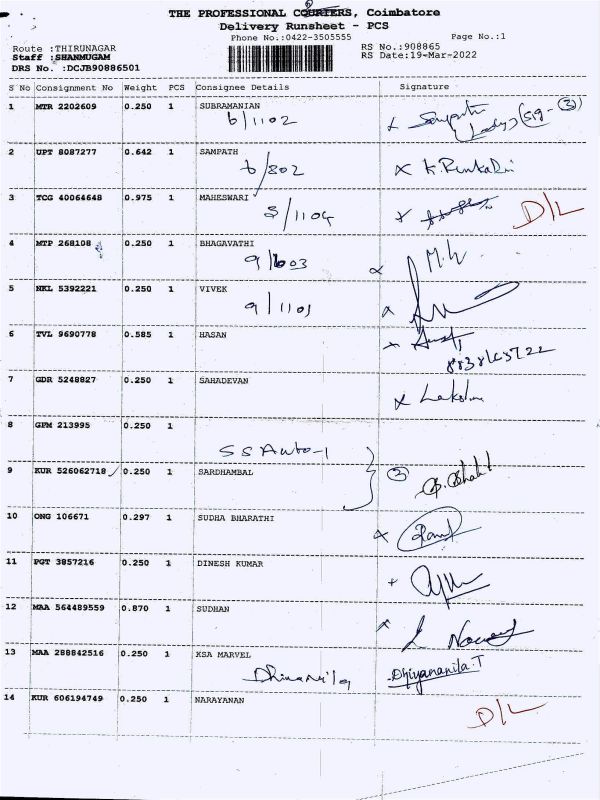 THE PROFESSIONAL COURIERS, Coimbatore
Delivery Runsheet - PCS
Phone No.:0422-3505555
Page No.:1
Route :THIRUNAGAR
RS No.:908865
Staff :SHANMUGAM
RS Date:19-Mar-2022
DRS No. :DCJB90886501
S No Consignment No Weight PCS Consignee Details Signature
1 MTR 2202609 0.250 1 SUBRAMANIAN
6/1102
2 UPT 8087277 0.642 1 SAMPATH
6/802
3 TCG 40064648 0.975 1 MAHESWARI
S/1104 D/L
4 MTP 268108 0.250 1 BHAGAVATHI
9/603
5 NKL 5392221 0.250 1 VIVEK
9/1101
6 TVL 9690778 0.585 1 HASAN
7 GDR 5248827 0.250 1 SAHADEVAN
8 GPM 213995 0.250 1
SS Auto-1
9 KUR 526062718 0.250 1 SARDHAMBAL
10 ONG 106671 0.297 1 SUDHA BHARATHI
11 PGT 3857216 0.250 1 DINESH KUMAR
12 MAA 564489559 0.870 1 SUDHAN
13 MAA 288842516 0.250 1 KSA MARVEL
Dhiyananila.T
14 KUR 606194749 0.250 1 NARAYANAN
D/L